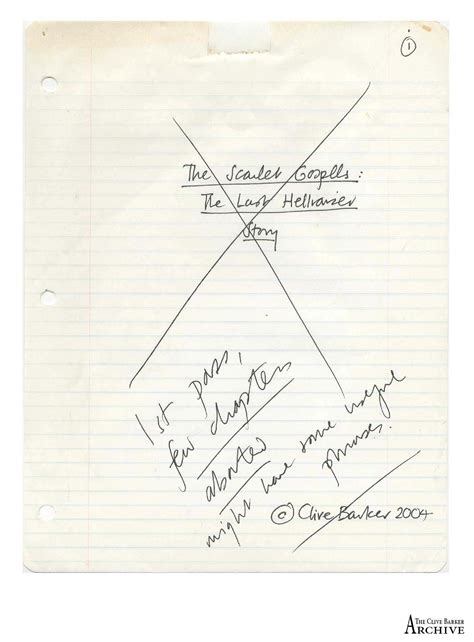 1
The Scarlet Gospels:
The Last Hellraiser
Story
1st pass,
few chapters
aborted
might have some
phrases.
© Clive Barker 2004
THE CLIVE BARKER
ARCHIVE